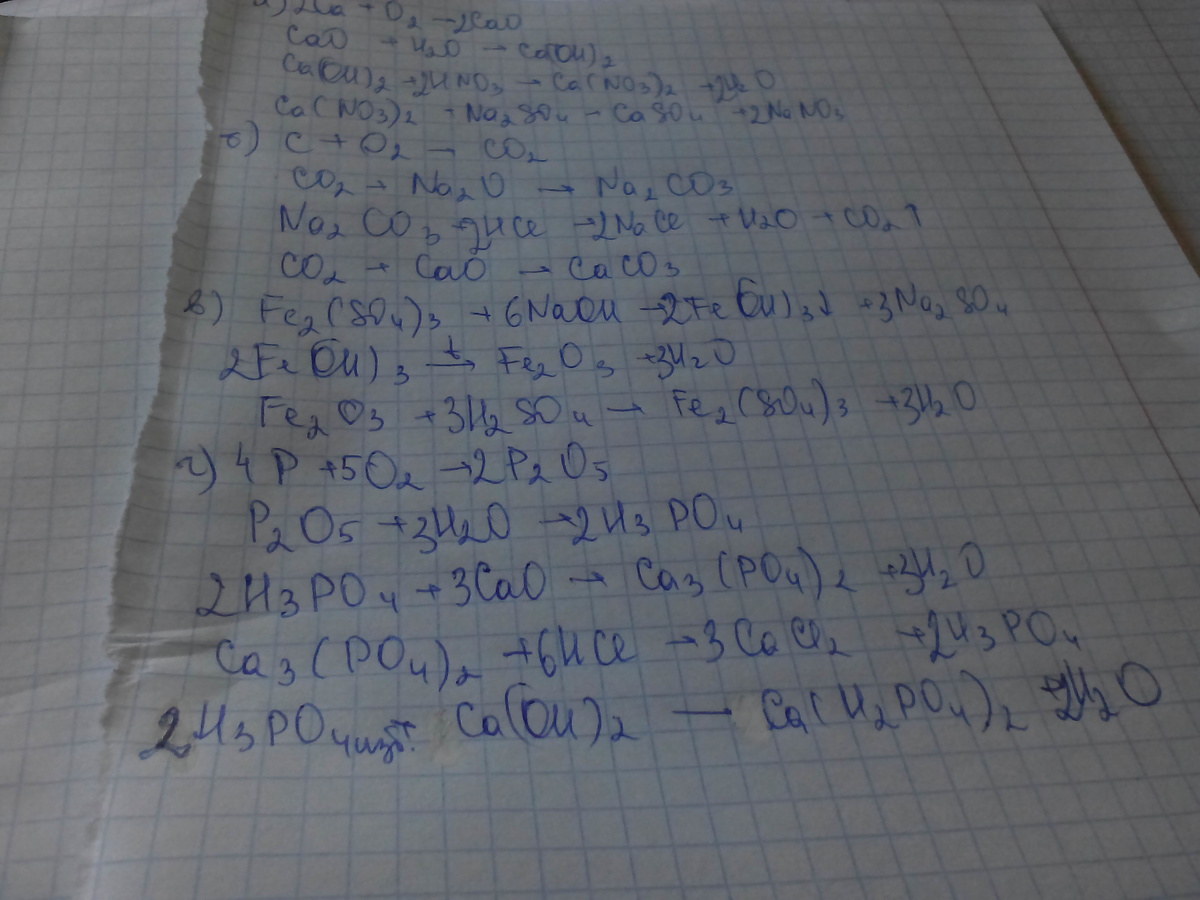 а) 2Ca + O2 → 2CaO
CaO + H2O → Ca(OH)2
Ca(OH)2 + 2HNO3 → Ca(NO3)2 + 2H2O
Ca(NO3)2 + Na2SO4 → CaSO4 + 2NaNO3
б) C + O2 → CO2
CO2 + Na2O → Na2CO3
Na2CO3 + 2HCl → 2NaCl + H2O + CO2↑
CO2 + CaO → CaCO3
в) Fe2(SO4)3 + 6NaOH → 2Fe(OH)3↓ + 3Na2SO4
2Fe(OH)3 t→ Fe2O3 + 3H2O
Fe2O3 + 3H2SO4 → Fe2(SO4)3 + 3H2O
г) 4P + 5O2 → 2P2O5
P2O5 + 3H2O → 2H3PO4
2H3PO4 + 3CaO → Ca3(PO4)2 + 3H2O
Ca3(PO4)2 + 6HCl → 3CaCl2 + 2H3PO4
2H3PO4 изб. + Ca(OH)2 → Ca(H2PO4)2 + 2H2O